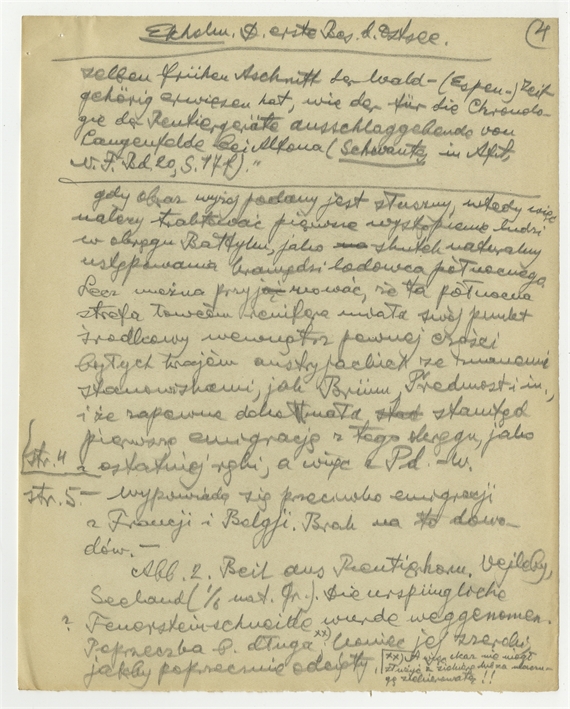 Ekholm. D. erste Bes. d. Ostsee.
4
selben frühen Aschnitt der Wald-(Espen-)Zeit
gehörig erwiesen hat, wie der für die Chronolo-
gie der Rentiergeräte ausschlaggebende von
Langenfelde bei Altona (Schwantes, in
N.F. Bd. 20, S. 177)."
gdy obraz wyżej podany jest słuszny, wtedy więc
należy traktować pierwsze wystąpienie ludzi
w okręgu Bałtyku, jako skutek naturalny
ustępowania krawędzi lodowca północnego.
Lecz można przyjmować, że ta północna
strefa łowców renifera miała swój punkt
środkowy wewnątrz pewnej części
byłych krajów austryjackich ze znanemi
stanowiskami, jak Brünn, Předmost i in.,
i że zapewne dokonała stamtąd
pierwszą emigrację z tego okręgu, jako
str. 4
z ostatniej ręki, a więc z Pd.-W.
str. 5. - wypowiada się przeciwko emigracji
z Francji i Belgji. Brak na to dowo-
dów. -
Abb. 2. Beil aus Rentierhorn. Vejleby,
Seeland (1/2 nat. Gr.). Die ursprüngliche
? Feuersteinschneide wurde weggenommen.
Poprzeczka b. długa xx) koniec jej szeroki,
jakby poprzecznie odcięty,
xx)
!!